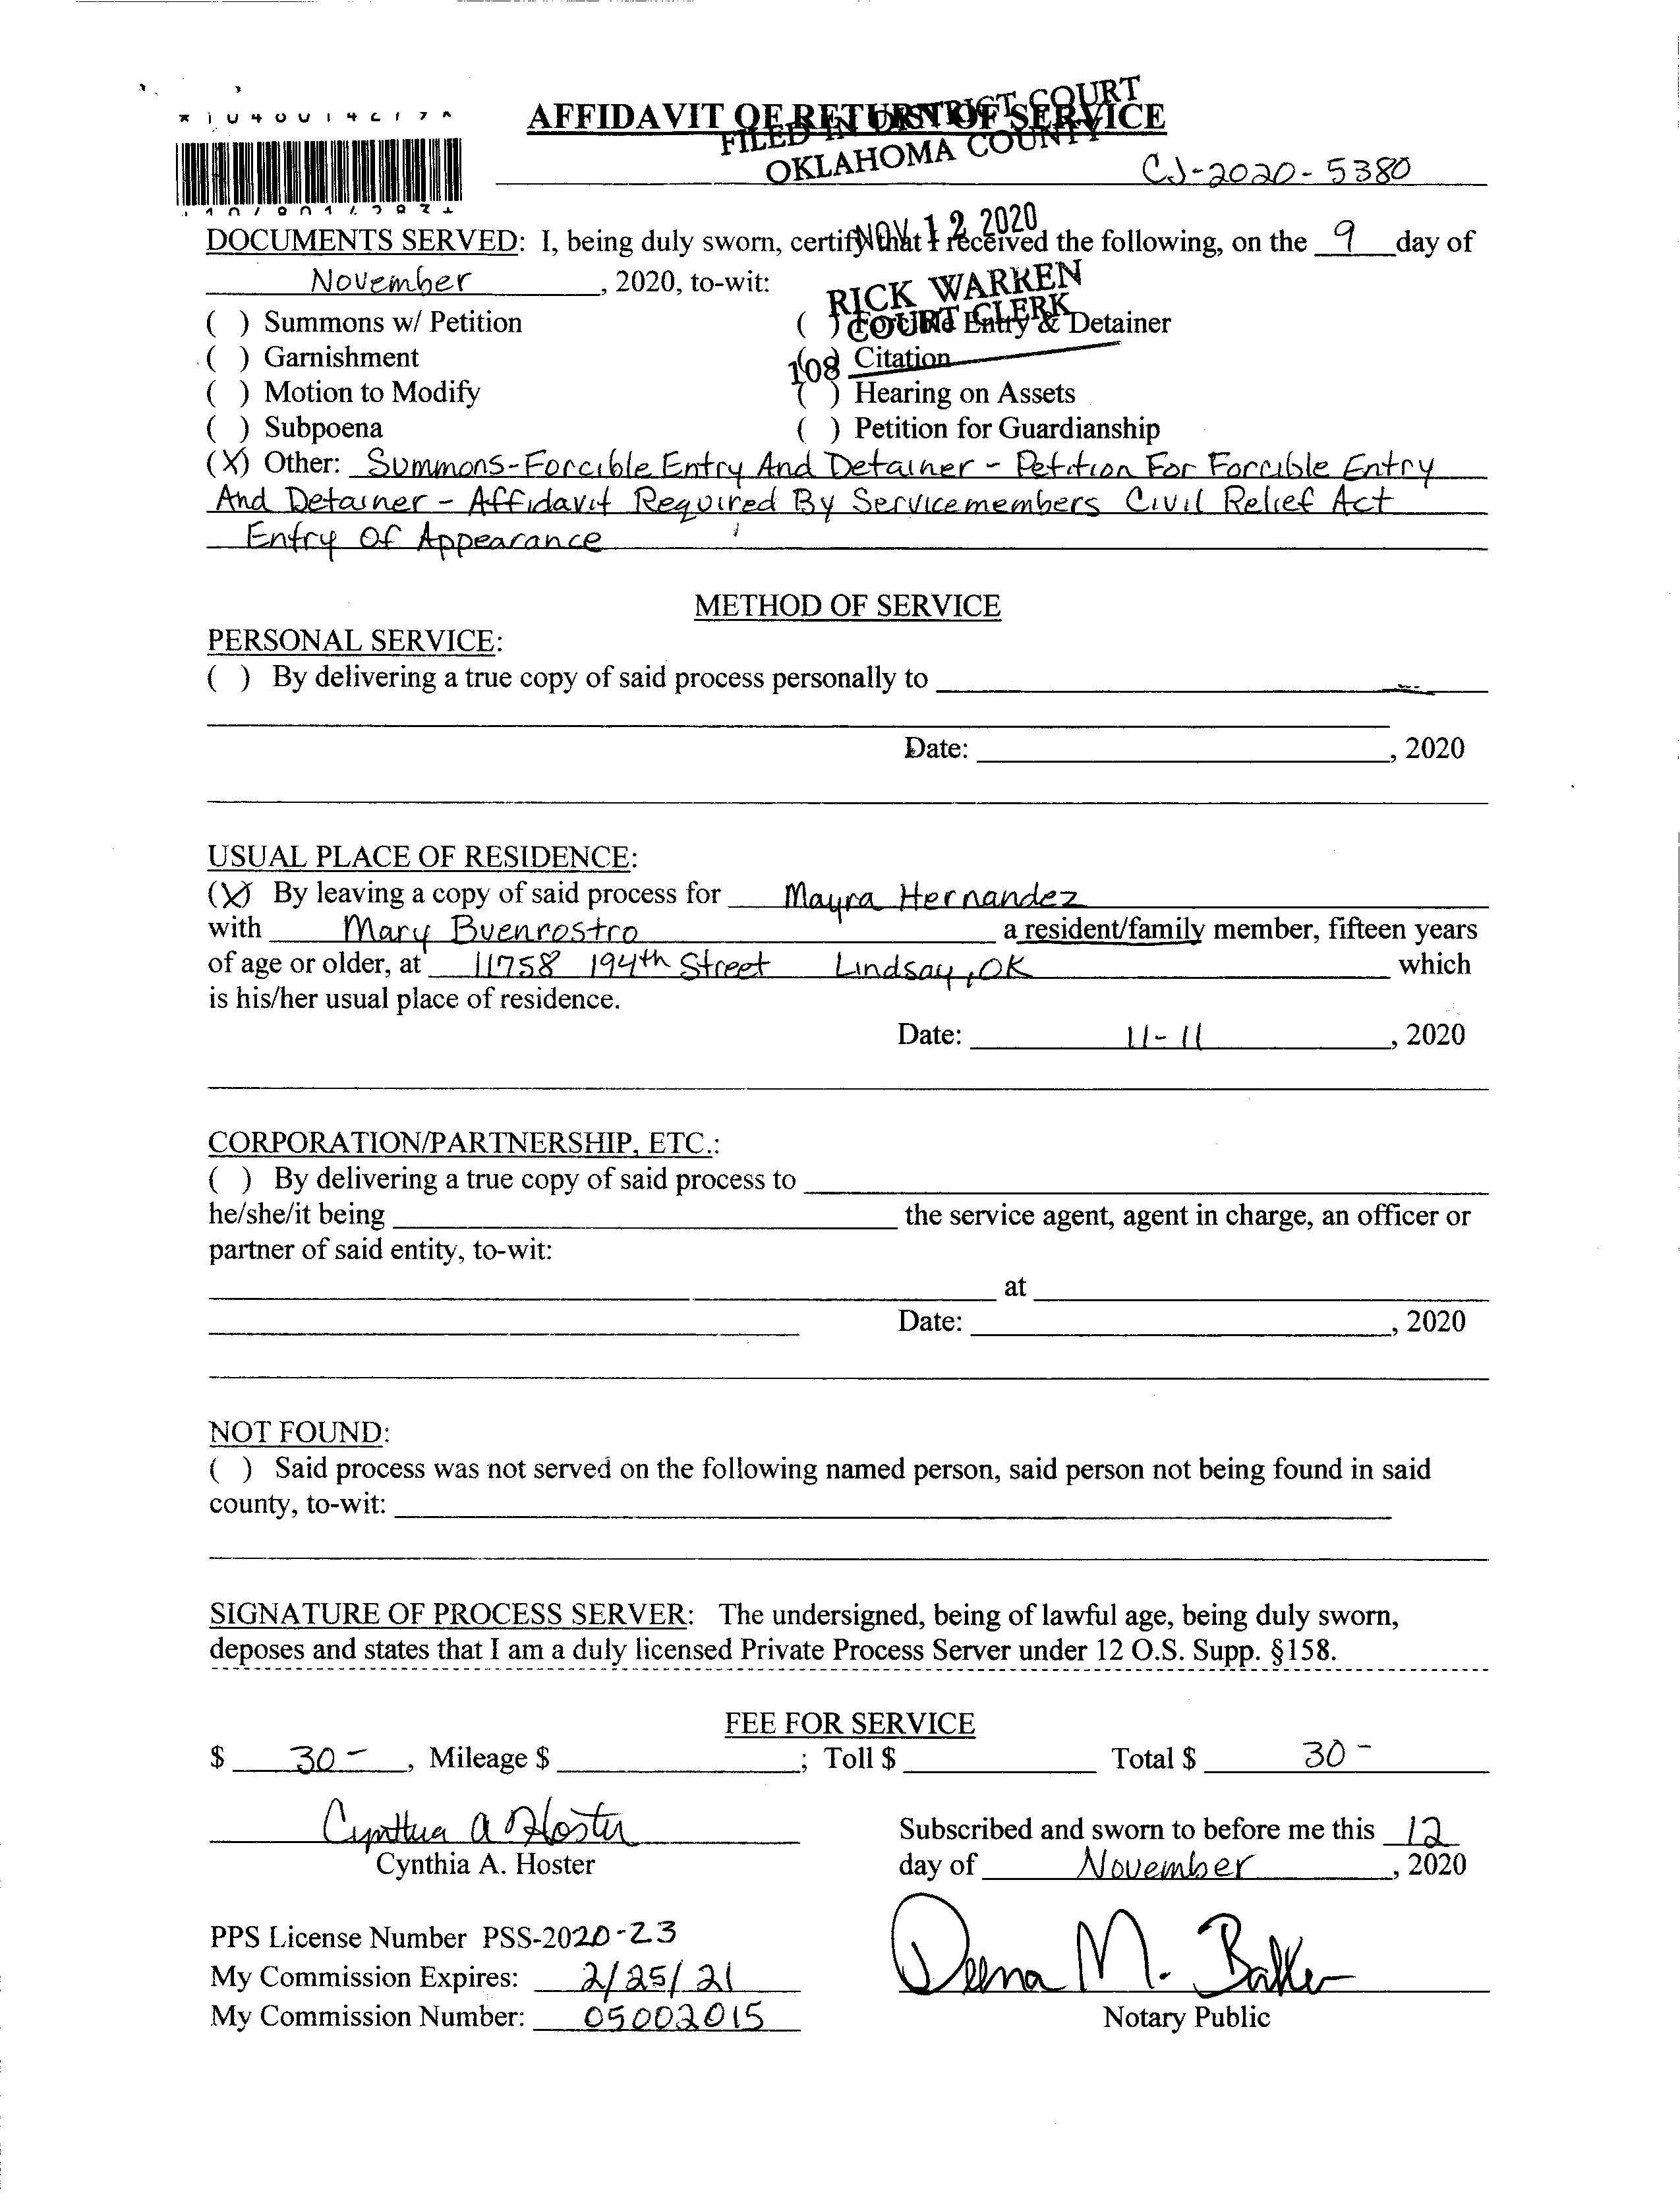 AFFIDAVIT OF RETURN OF SERVICE
FILED IN DISTRICT COURT
OKLAHOMA COUNTY
CJ-2020-5380
NOV 12 2020
DOCUMENTS SERVED: I, being duly sworn, certify that I received the following, on the 9 day of
November, 2020, to-wit:
RICK WARREN
COURT CLERK
108
( ) Summons w/ Petition ( ) Forcible Entry & Detainer
( ) Garnishment ( ) Citation
( ) Motion to Modify ( ) Hearing on Assets
( ) Subpoena ( ) Petition for Guardianship
(X) Other: Summons-Forcible Entry And Detainer - Petition For Forcible Entry
And Detainer - Affidavit Required By Servicemembers Civil Relief Act
Entry Of Appearance
METHOD OF SERVICE
PERSONAL SERVICE:
( ) By delivering a true copy of said process personally to
Date: , 2020
USUAL PLACE OF RESIDENCE:
(X) By leaving a copy of said process for Mayra Hernandez
with Mary Buenrostro a resident/family member, fifteen years
of age or older, at 11758 194th Street Lindsay, OK which
is his/her usual place of residence.
Date: 11-11, 2020
CORPORATION/PARTNERSHIP, ETC.:
( ) By delivering a true copy of said process to
he/she/it being the service agent, agent in charge, an officer or
partner of said entity, to-wit:
at
Date: , 2020
NOT FOUND:
( ) Said process was not served on the following named person, said person not being found in said
county, to-wit:
SIGNATURE OF PROCESS SERVER: The undersigned, being of lawful age, being duly sworn,
deposes and states that I am a duly licensed Private Process Server under 12 O.S. Supp. §158.
FEE FOR SERVICE
$ 30 -, Mileage $ ; Toll $ Total $ 30 -
Cynthia A Hoster Subscribed and sworn to before me this 12
Cynthia A. Hoster day of November, 2020
PPS License Number PSS-2020-23 Deena M. Baker
My Commission Expires: 2/25/21
My Commission Number: 05002015 Notary Public